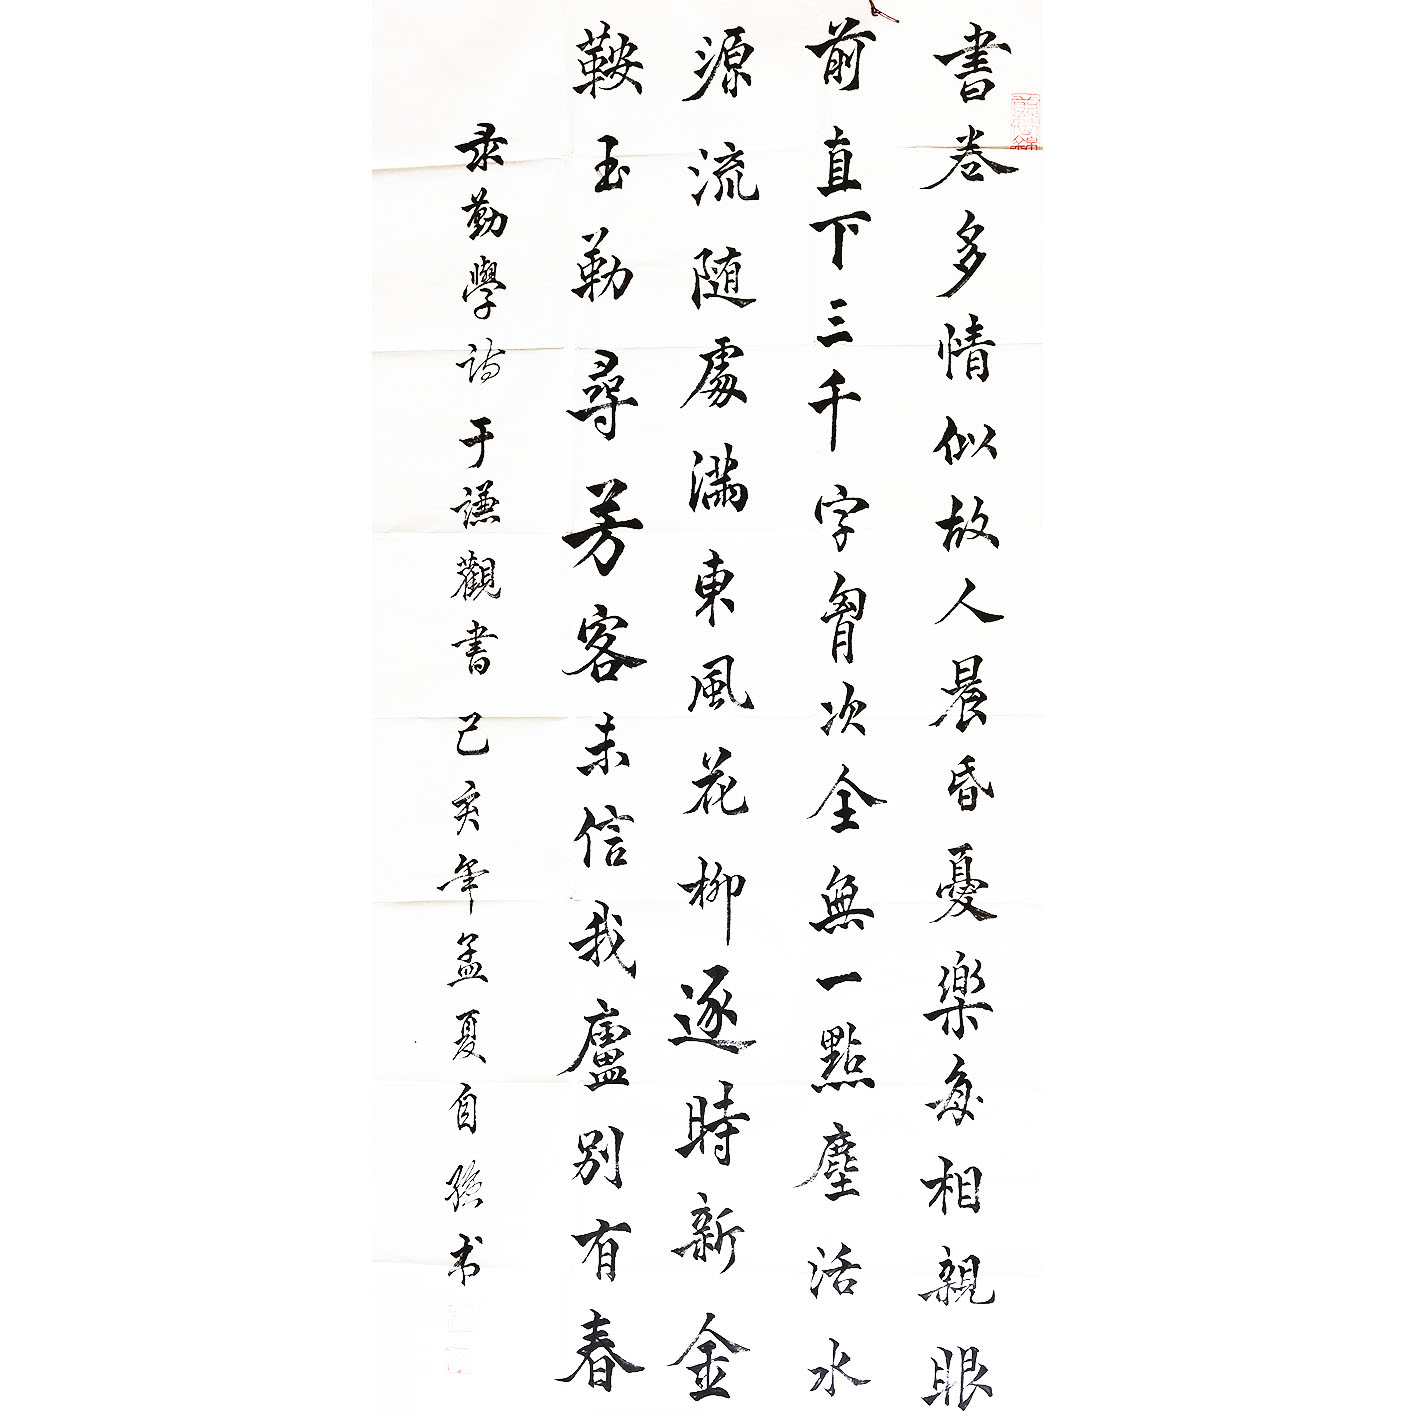 書卷多情似故人晨昏憂樂每相親眼
前直下三千字胷次全無一點塵活水
源流随處滿東風花柳逐時新金
鞍玉勒尋芳客未信我廬别有春
录勤學诗于谦觀書己亥年孟夏自强书